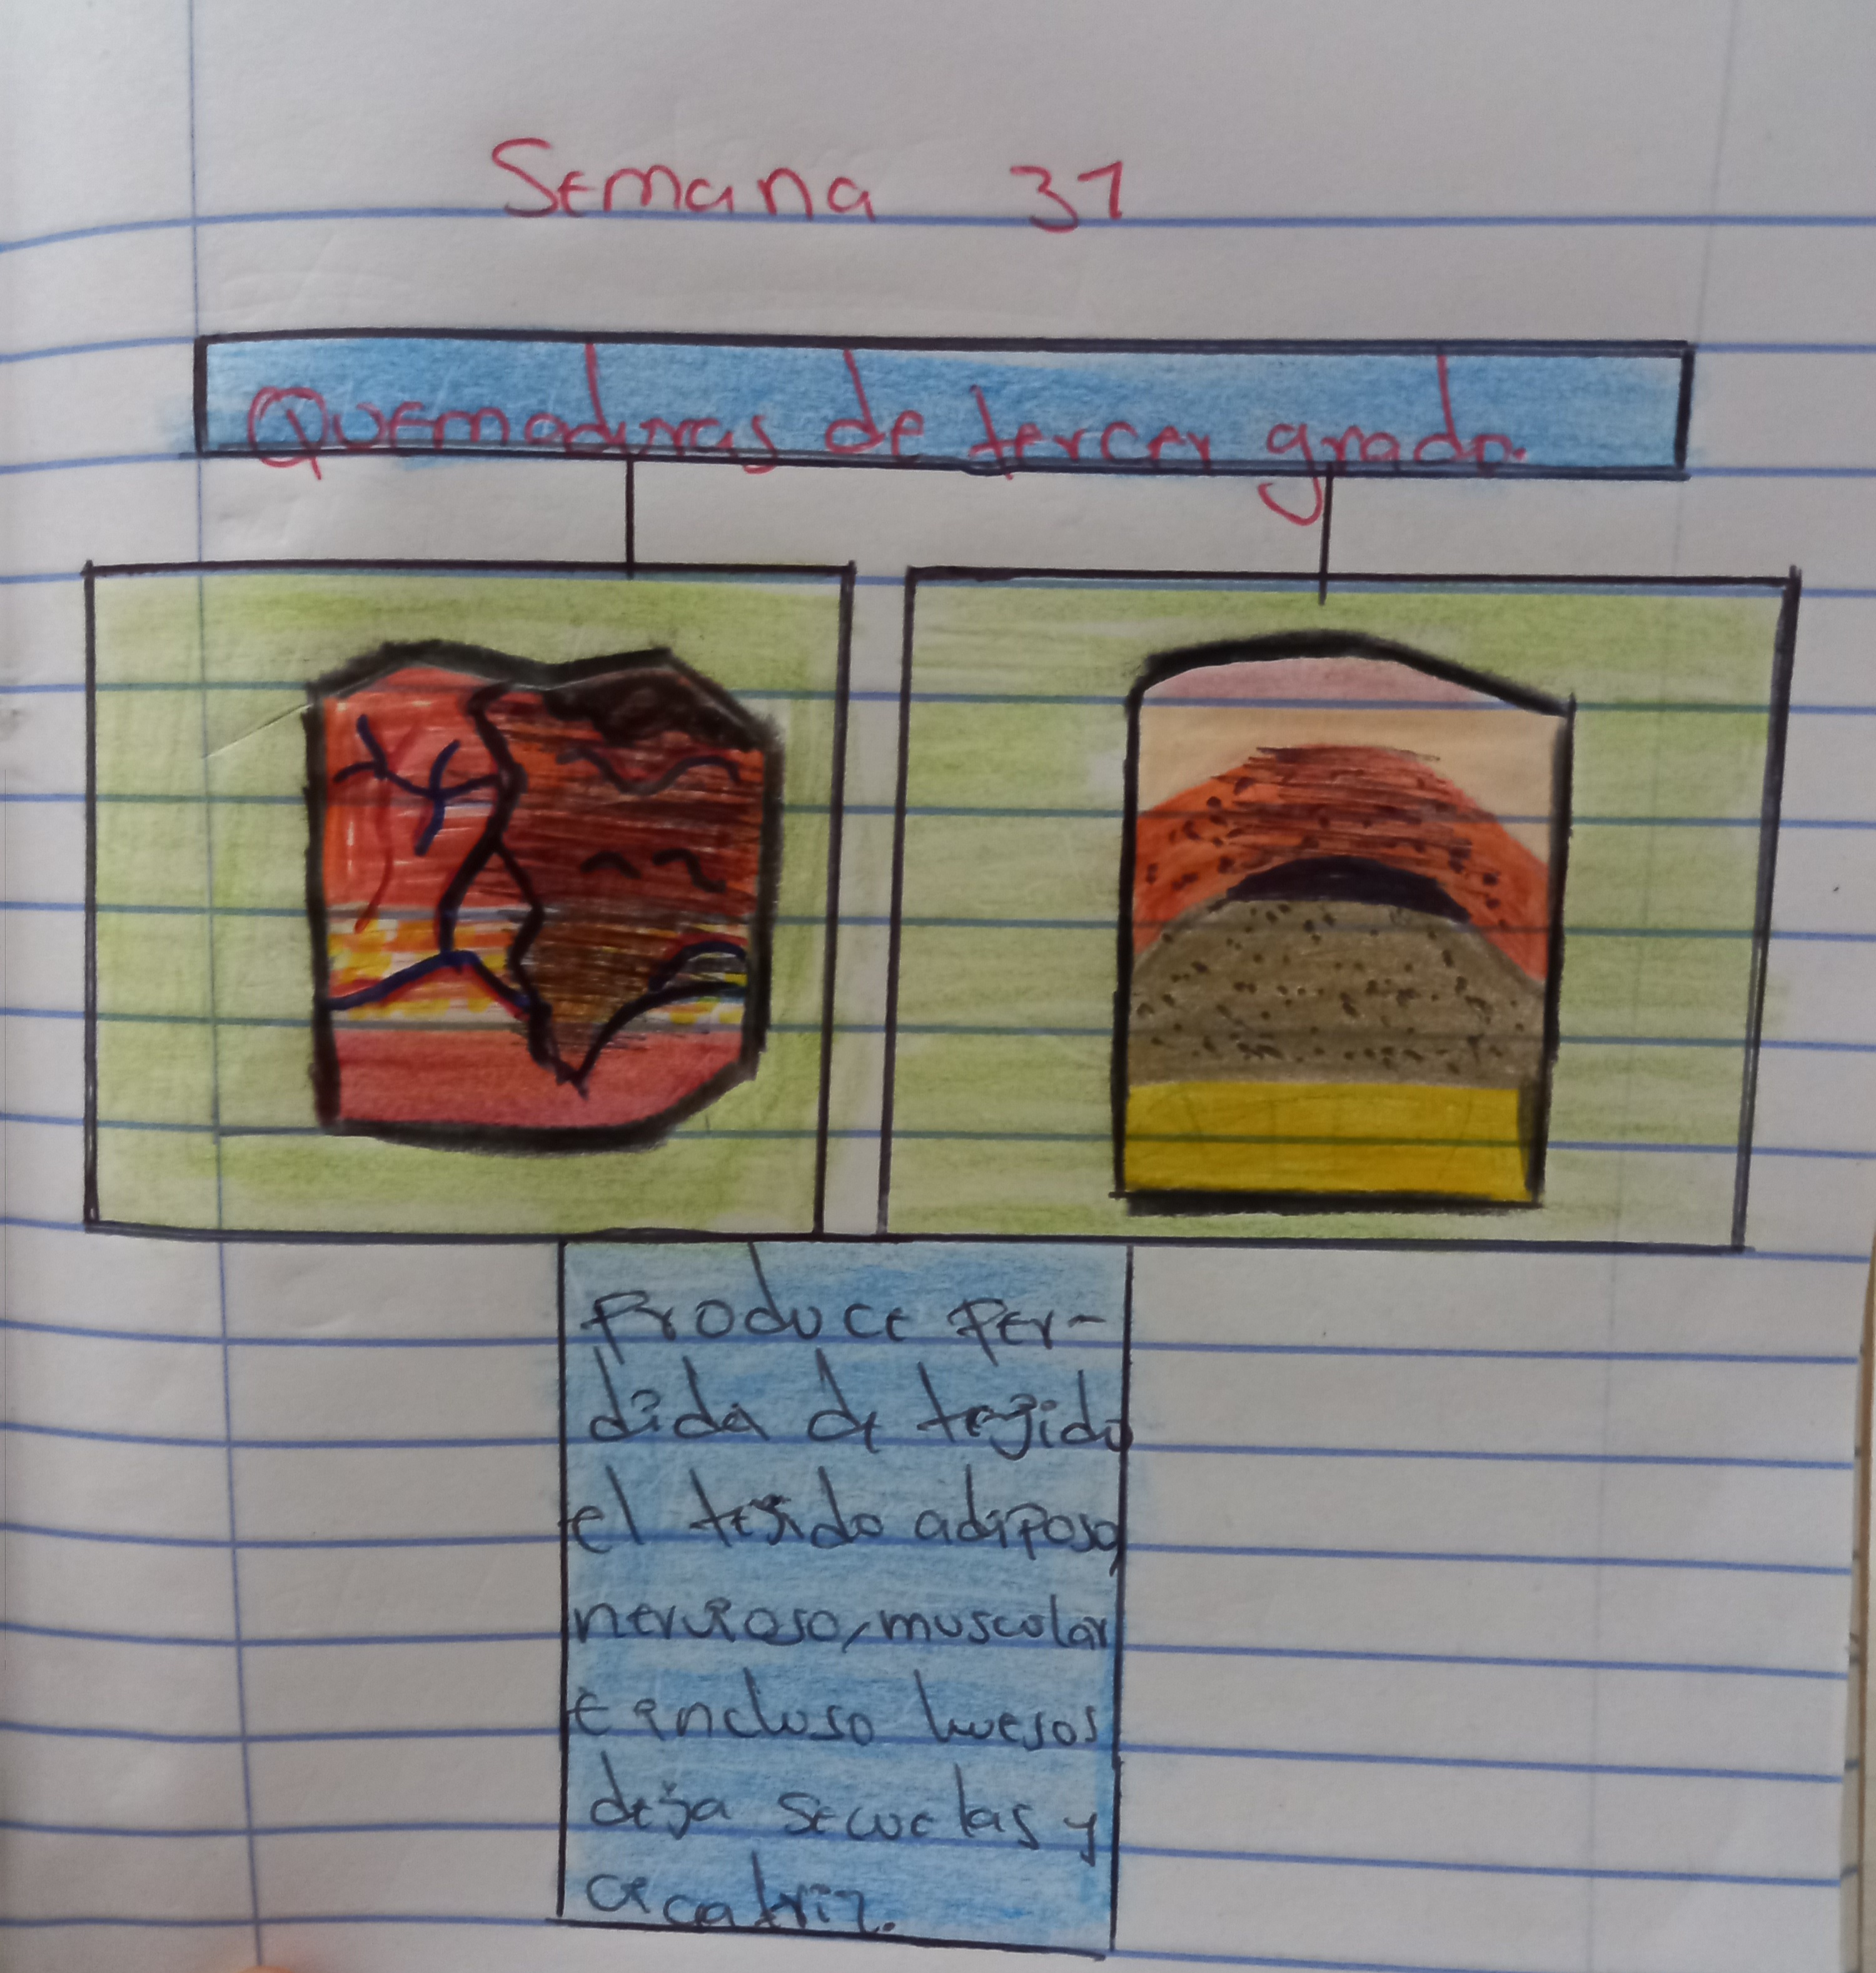 Semana 31
Quemaduras de tercer grado.
Produce Per-
dida de tejido
el tejido adiposo,
nervioso, muscular
e incluso huesos
deja secuelas y
cicatriz.